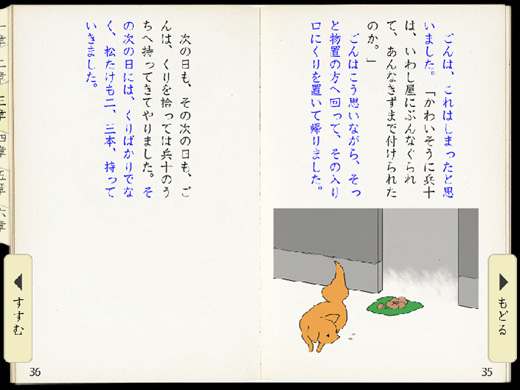 ごんは、これはしまったと思
いました。「かわいそうに兵十
は、いわし屋にぶんなぐられ
て、あんなきずまで付けられた
のか。」
ごんはこう思いながら、そっ
と物置の方へ回って、その入り
口にくりを置いて帰りました。
もどる
35
次の日も、その次の日も、ご
んは、くりを拾っては兵十のう
ちへ持ってきてやりました。そ
の次の日には、くりばかりでな
く、松たけも二、三本、持って
いきました。
一章
二章
三章
四章
五章
六章
すすむ
36